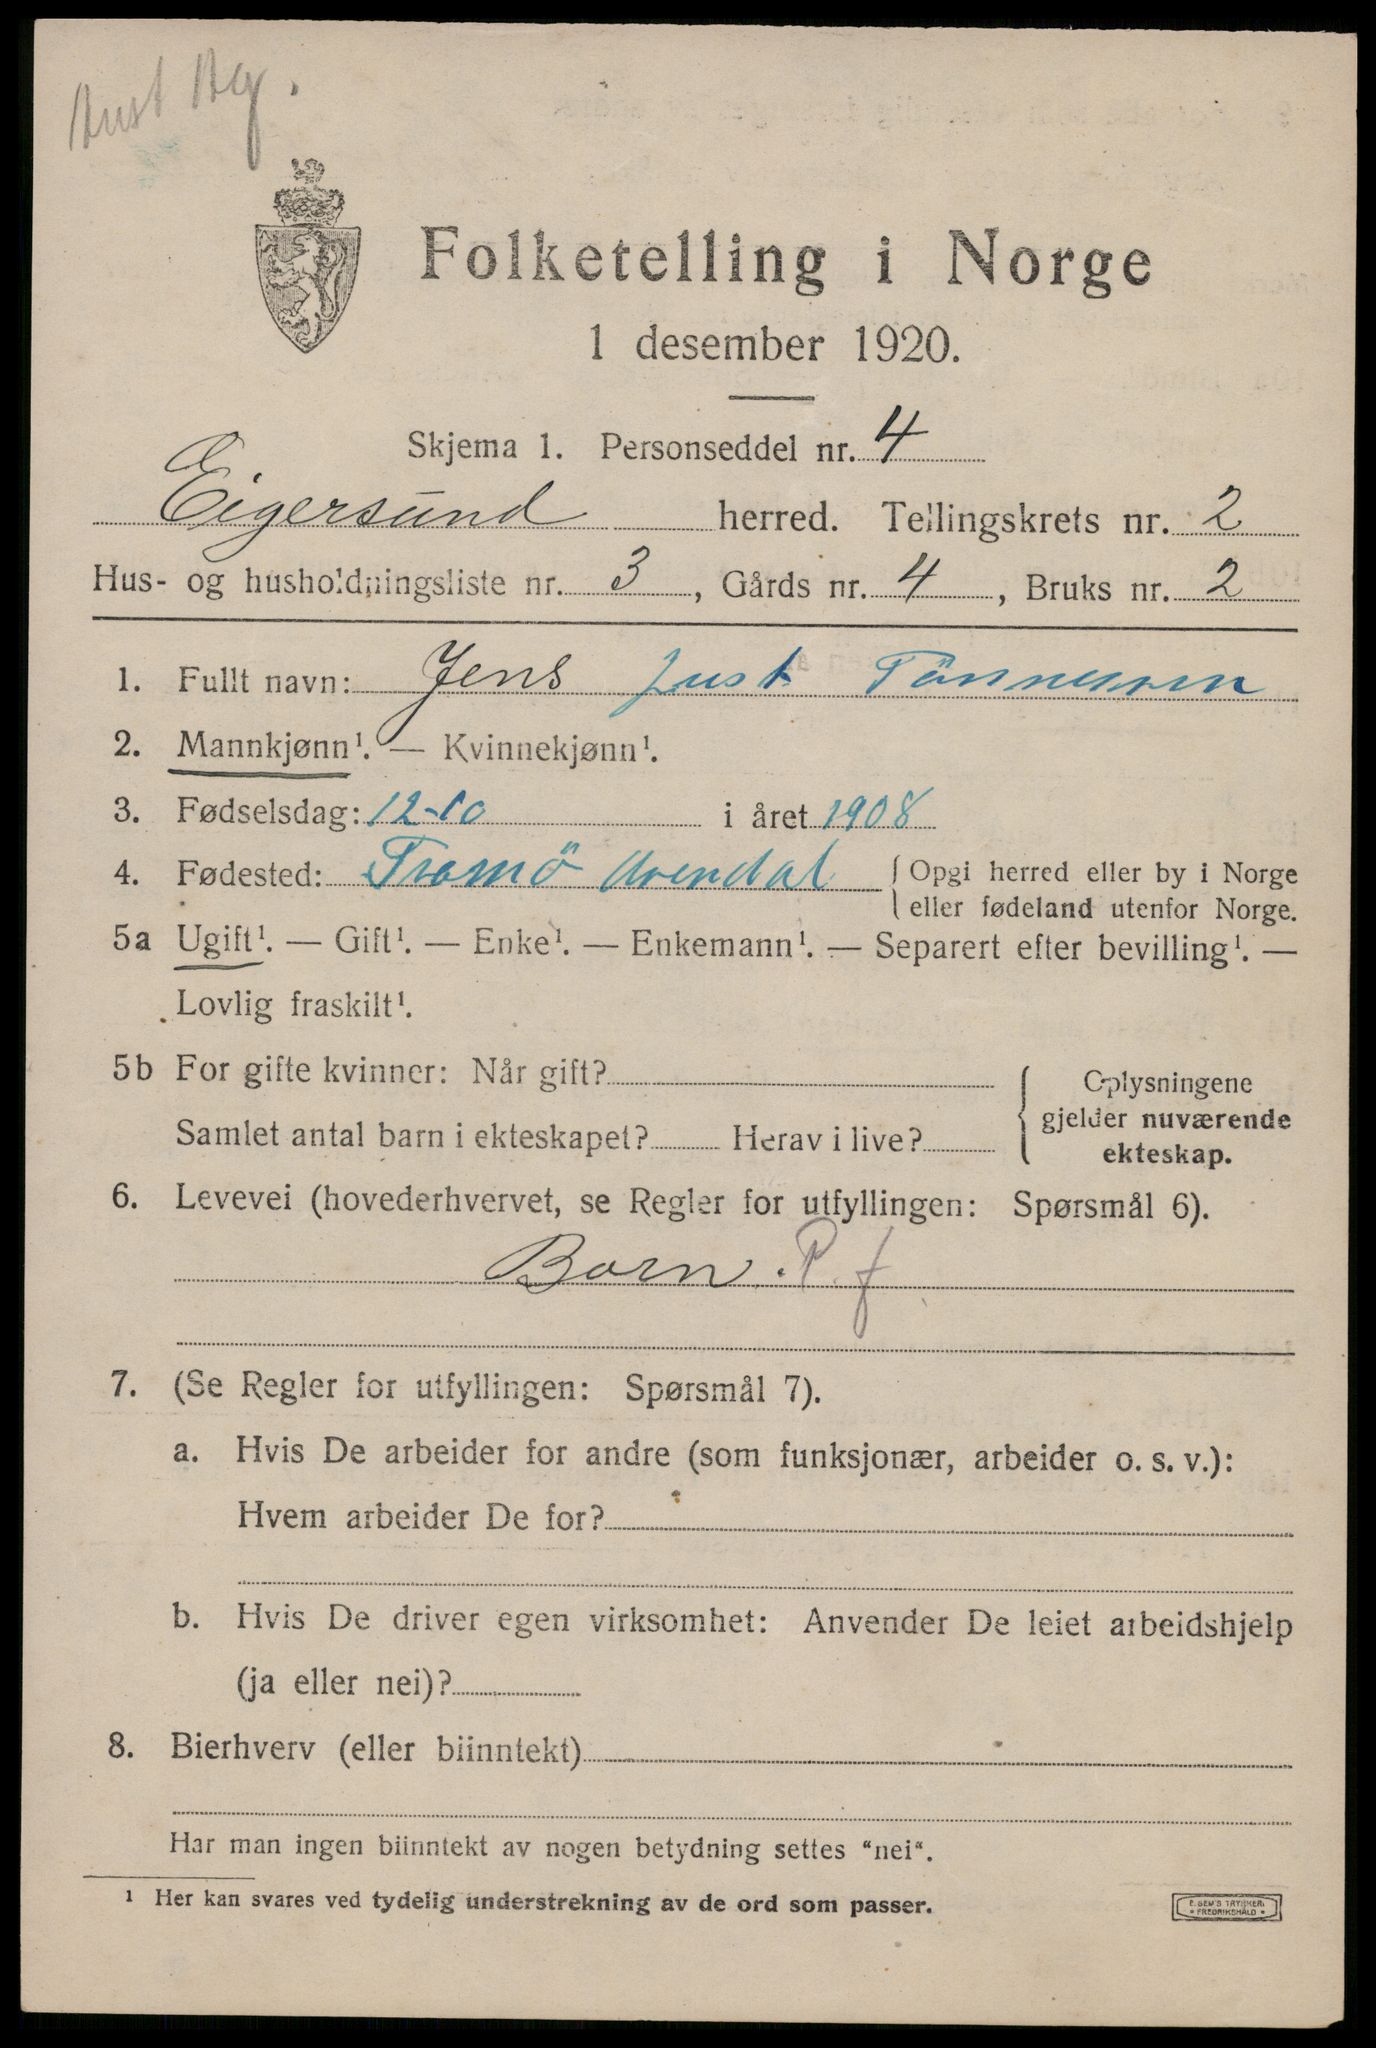 Aust Ag.
Folketelling i Norge
1 desember 1920.
Skjema 1. Personseddel nr. 4
Eigersund herred. Tellingskrets nr. 2
Hus- og husholdningsliste nr. 3, Gårds nr. 4, Bruks nr. 2
1. Fullt navn: Jens Just Tönnessen
2. Mannkjønn¹. — Kvinnekjønn¹.
3. Fødselsdag: 12-10 i året 1908
4. Fødested: Tromö Arendal { Opgi herred eller by i Norge
eller fødeland utenfor Norge.
5a Ugift¹. — Gift¹. — Enke¹. — Enkemann¹. — Separert efter bevilling¹. —
Lovlig fraskilt¹.
5b For gifte kvinner: Når gift?
Samlet antal barn i ekteskapet? Herav i live?
{ Oplysningene
gjelder nuværende
ekteskap.
6. Levevei (hovederhvervet, se Regler for utfyllingen: Spørsmål 6).
Barn. P. f
7. (Se Regler for utfyllingen: Spørsmål 7).
a. Hvis De arbeider for andre (som funksjonær, arbeider o. s. v.):
Hvem arbeider De for?
b. Hvis De driver egen virksomhet: Anvender De leiet arbeidshjelp
(ja eller nei)?
8. Bierhverv (eller biinntekt)
Har man ingen biinntekt av nogen betydning settes "nei".
1 Her kan svares ved tydelig understrekning av de ord som passer.
E. SEM'S TRYKKERI
• FREDRIKSHALD •